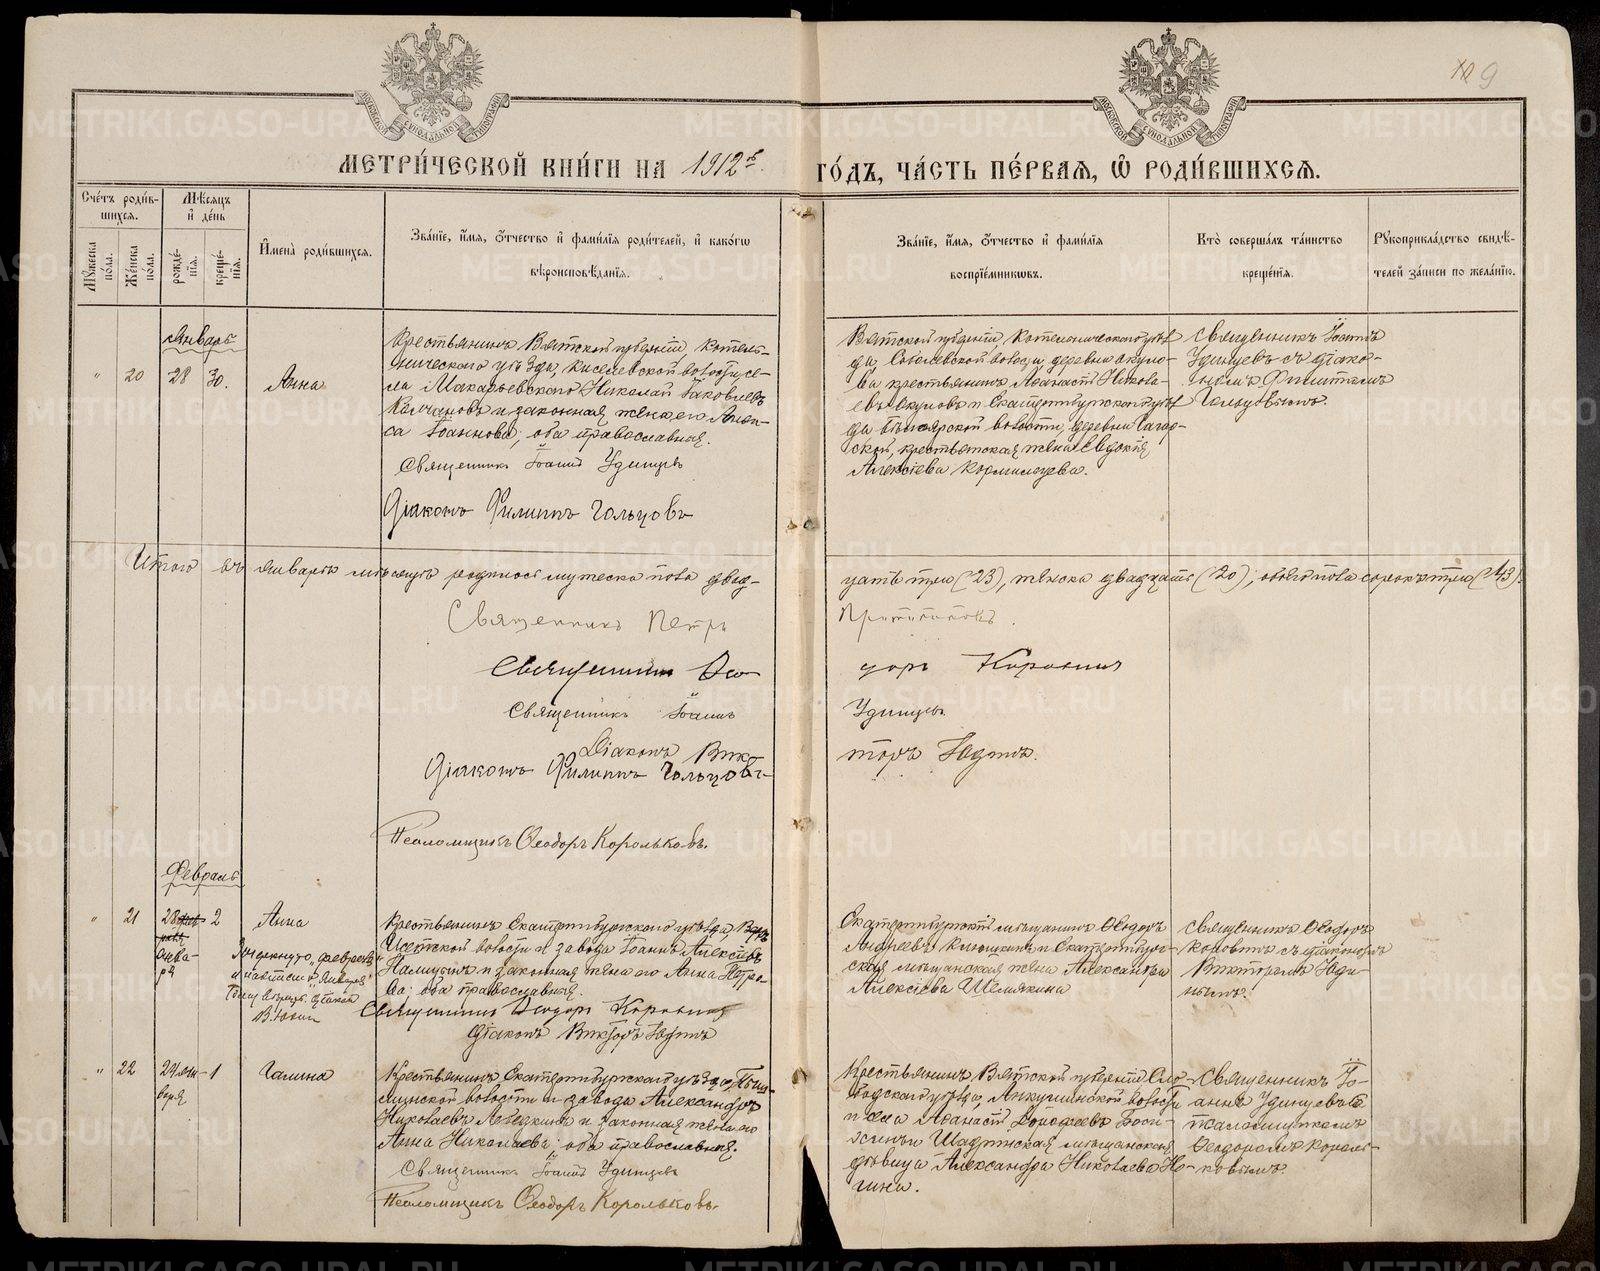 МЕТРИ́ЧЕСКОЙ КНИ́ГИ НА 1912й ГО́ДЪ, ЧА́СТЬ ПЕ́РВАѦ, Ѡ҆ РОДИ́ВШИХСѦ.
9
Сче́тъ роди́в-
шихсѧ.
Мѣ́сѧцъ
и҆ де́нь
Мꙋ́жеска
по́ла.
Же́нска
по́ла.
рожде́-
нїѧ.
креще́-
нїѧ.
И҆мена̀ роди́вшихсѧ.
Зва́нїе, и҆́мѧ, ѻ҆́тчество и҆ фами́лїѧ роди́телей, и҆ како́гѡ
вѣроисповѣ́данїѧ.
Зва́нїе, и҆́мѧ, ѻ҆́тчество и҆ фами́лїѧ
воспрїе́мникѡвъ.
Кто̀ соверша́лъ та́инство
креще́нїѧ.
Рꙋкоприкла́дство свидѣ́-
телей за́писи по жела́нїю.
Январь
" 20 28 30. Анна
Крестьянинъ Вятской губерніи, Котель-
ническаго уѣзда, Киселевской волости, се-
ла Макарьевскаго Николай Іаковлевъ
и законная жена его
Іоаннова; оба православная.
Священникъ Іоаннъ Удинцевъ
Діаконъ Филиппъ Гольцовъ
Вятской губерніи, Котельническаго уѣз-
да, волости, деревни Окуло-
ва крестьянинъ Аѳанасій Никола-
евъ Окуловъ и Екатеринбургскаго уѣз-
да волости, деревни
крестьянская жена Евдокія
Алексіева Кормильцева.
Священникъ Іоаннъ
Удинцевъ съ діако-
номъ Филиппомъ
Гольцовымъ.
Итого въ Январѣ мѣсяцѣ родилось мужеска пола двад-
цать три (23), женска двадцать (20); обоего пола сорокъ три (43).
Священникъ Петръ
Священникъ Ѳео-
доръ Коровинъ
Священникъ Іоаннъ
Удинцевъ.
Діаконъ Вик-
торъ Юдинъ.
Діаконъ Филиппъ Гольцовъ
Псаломщикъ Ѳеодоръ Корольковъ.
Февраль
" 21 28 Янва-
ря 2 Анна
Зачеркнуто "февраля"
и написано "Января"
діакон
В. Юдин
Крестьянинъ Екатеринбургскаго уѣзда
Исетской волости и завода Іоаннъ Алексіевъ
и законная жена его Анна Петро-
ва; оба православная.
Священникъ Ѳеодоръ Коровинъ
Діаконъ Викторъ Юдинъ
Екатеринбургскій мѣщанинъ Ѳеодоръ
Андреевъ и Екатеринбург-
ская мѣщанская жена Александра
Алексіева Шемякина
Священникъ Ѳеодоръ
Коровинъ съ діакономъ
Викторомъ Юди-
нымъ.
" 22 29 Ян-
варя 1 Галина
Крестьянинъ Екатеринбургскаго уѣзда, Пыш-
минской волости и завода Александръ
Николаевъ Лебедкинъ и законная жена его
Анна Николаева; оба православная.
Священникъ Іоаннъ Удинцевъ
Псаломщикъ Ѳеодоръ Корольковъ.
Крестьянинъ Вятской губерніи Сло-
бодскаго уѣзда, волости
и села Аѳанасій
Шадринская мѣщанская
дѣвица Александра Николаева Не-
гина.
Священникъ Іо-
аннъ Удинцевъ съ
псаломщикомъ
Ѳеодоромъ Король-
ковымъ.
METRIKI.GASO-URAL.RU